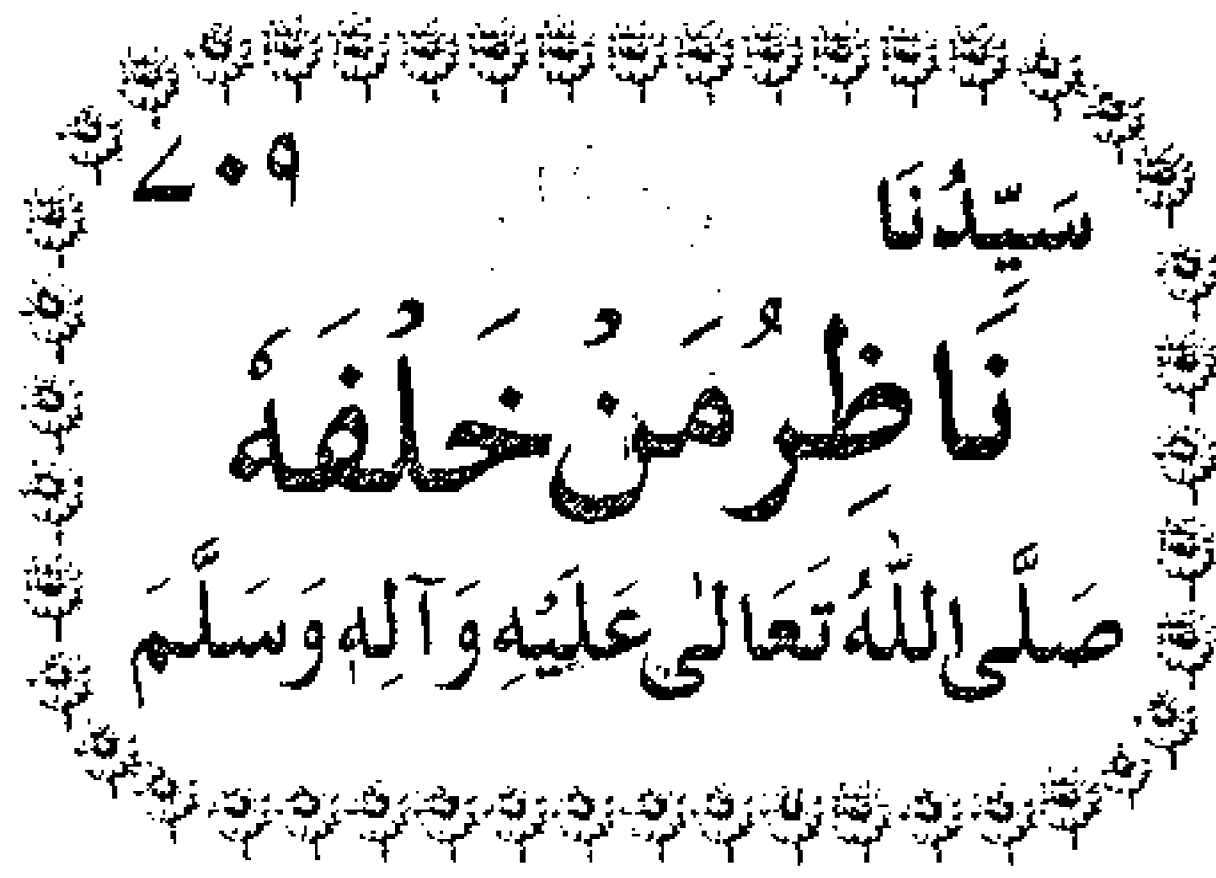 ۷۰۹
سَيِّدُنَا
نَاظِرُ مَنْ خَلْفَهٗ
صَلَّى اللّٰهُ تَعَالٰى عَلَيْهِ وَآلِهٖ وَسَلَّمَ